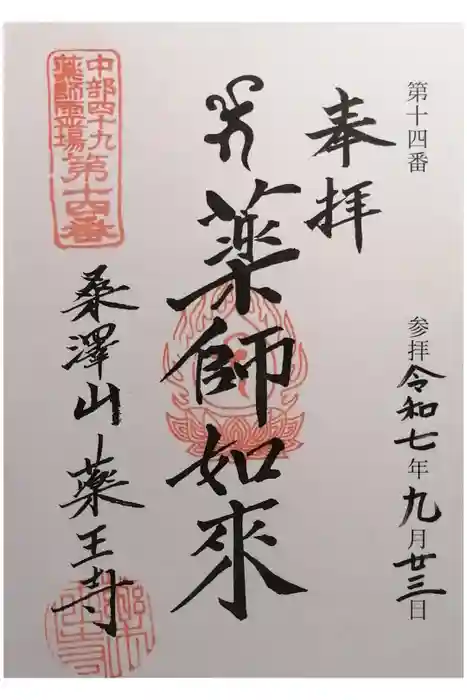 第十四番
参拝令和七年九月廿三日
奉拝
薬師如来
中部四十九
薬師霊場
第十四番
桑澤山
薬王寺